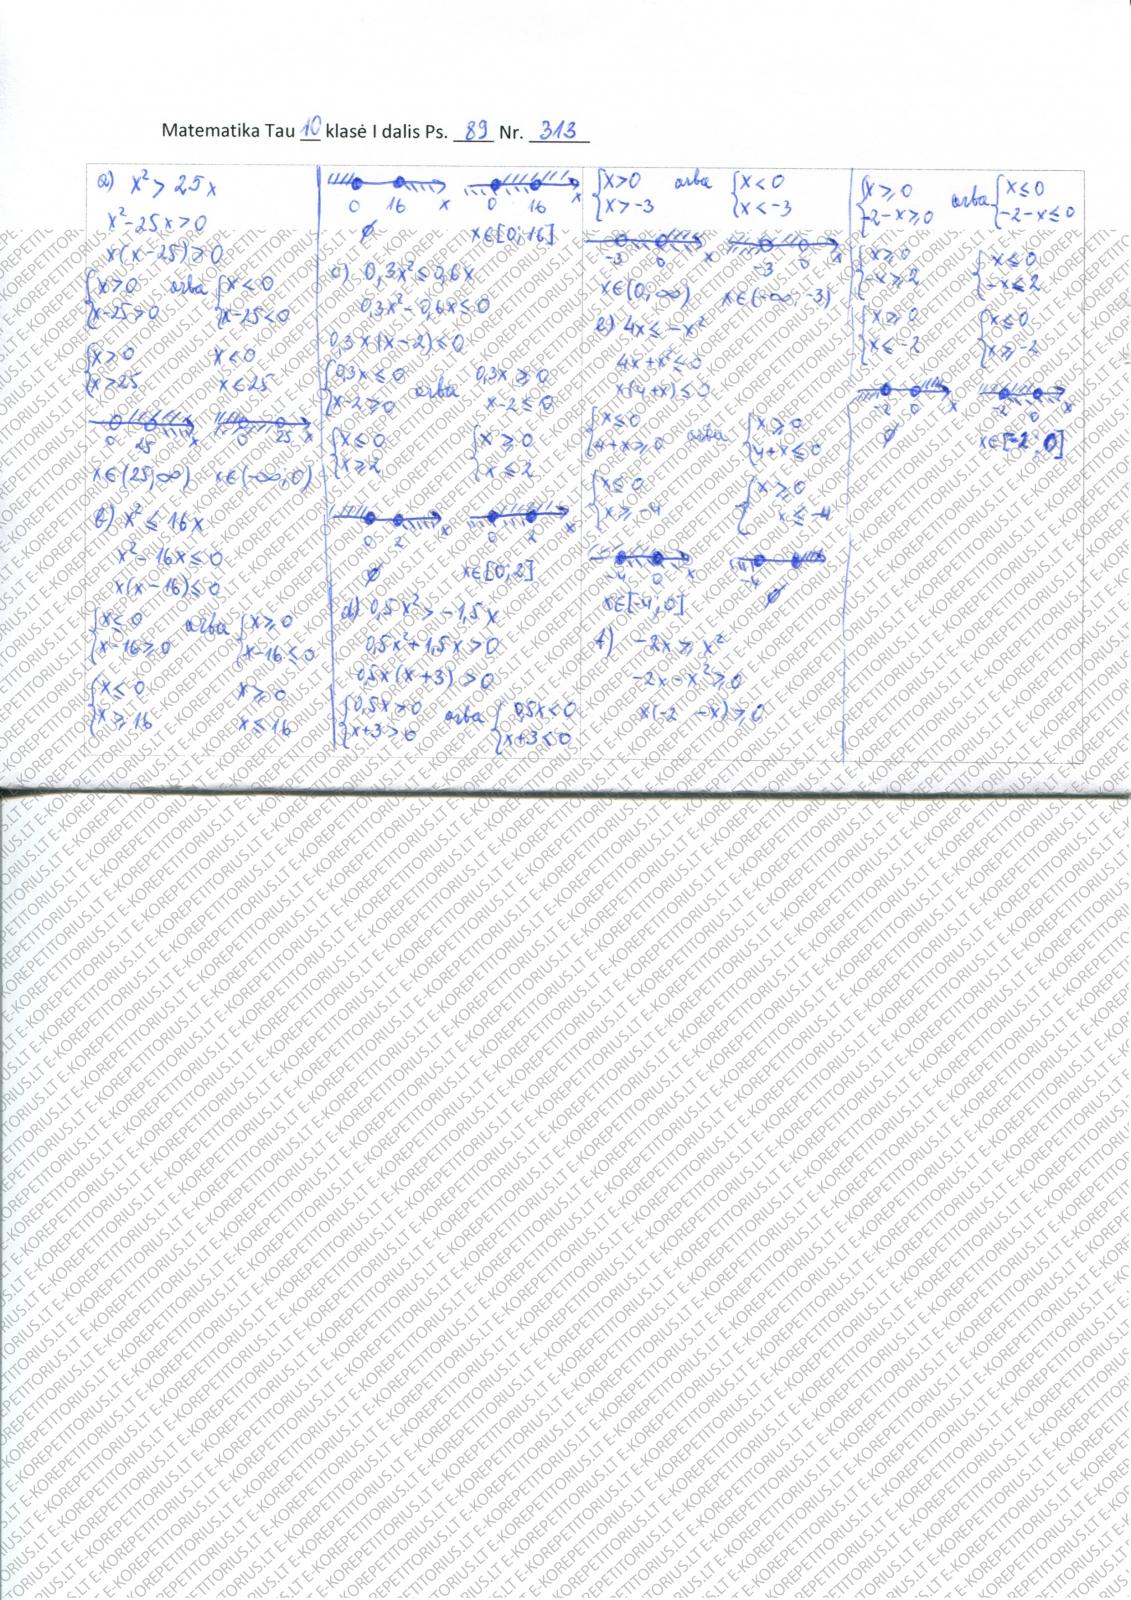 Matematika Tau 10 klasė I dalis Ps. 89 Nr. 313
a) x² > 25x
x² - 25x > 0
x(x-25) > 0
{x > 0 arba {x < 0
{x-25 > 0 {x-25 < 0
{x > 0 x < 0
{x > 25 x < 25
0 25 x 0 25 x
x∈(25;∞) x∈(-∞;0)
b) x² ≤ 16x
x² - 16x ≤ 0
x(x-16) ≤ 0
{x ≤ 0 arba {x ≥ 0
{x-16 ≥ 0 {x-16 ≤ 0
{x ≤ 0 x ≥ 0
{x ≥ 16 x ≤ 16
0 16 x 0 16 x
∅ x∈[0;16]
c) 0,3x² ≤ 0,6x
0,3x² - 0,6x ≤ 0
0,3x(x-2) ≤ 0
{0,3x ≤ 0 arba 0,3x ≥ 0
{x-2 ≥ 0 x-2 ≤ 0
{x ≤ 0 {x ≥ 0
{x ≥ 2 {x ≤ 2
0 2 x 0 2 x
∅ x∈[0;2]
d) 0,5x² > -1,5x
0,5x² + 1,5x > 0
0,5x(x+3) > 0
{0,5x > 0 arba {0,5x < 0
{x+3 > 0 {x+3 < 0
{x > 0 arba {x < 0
{x > -3 {x < -3
-3 0 x -3 0 x
x∈(0;∞) x∈(-∞;-3)
e) 4x ≤ -x²
4x + x² ≤ 0
x(4+x) ≤ 0
{x ≤ 0 arba {x ≥ 0
{4+x ≥ 0 {4+x ≤ 0
{x ≤ 0 {x ≥ 0
{x ≥ -4 {x ≤ -4
-4 0 x -4
x∈[-4;0] ∅
f) -2x ≥ x²
-2x - x² ≥ 0
x(-2 -x) ≥ 0
{x ≥ 0 arba {x ≤ 0
{-2-x ≥ 0 {-2-x ≤ 0
{x ≥ 0 {x ≤ 0
{-x ≥ 2 {-x ≤ 2
{x ≥ 0 {x ≤ 0
{x ≤ -2 {x ≥ -2
-2 0 x -2 0 x
∅ x∈[-2;0]
E-KOREPETITORIUS.LT